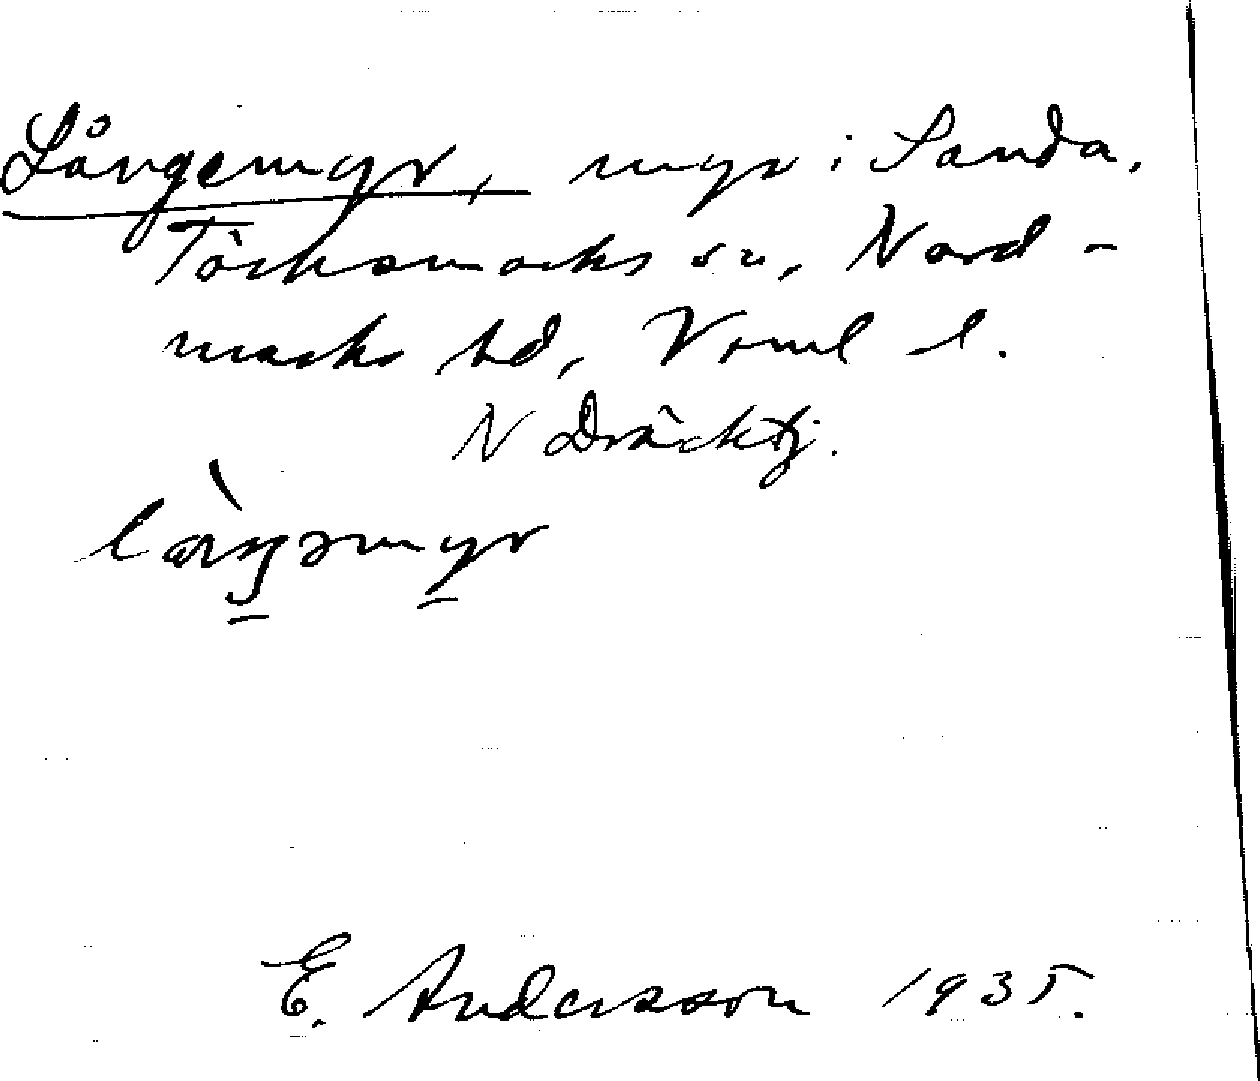 Långemyr, myr i Sanda,
Töcksmarks sn, Nord-
marks hd, Vrml l.
N Dräcktj.
långəmyr
E. Andersson 1935.